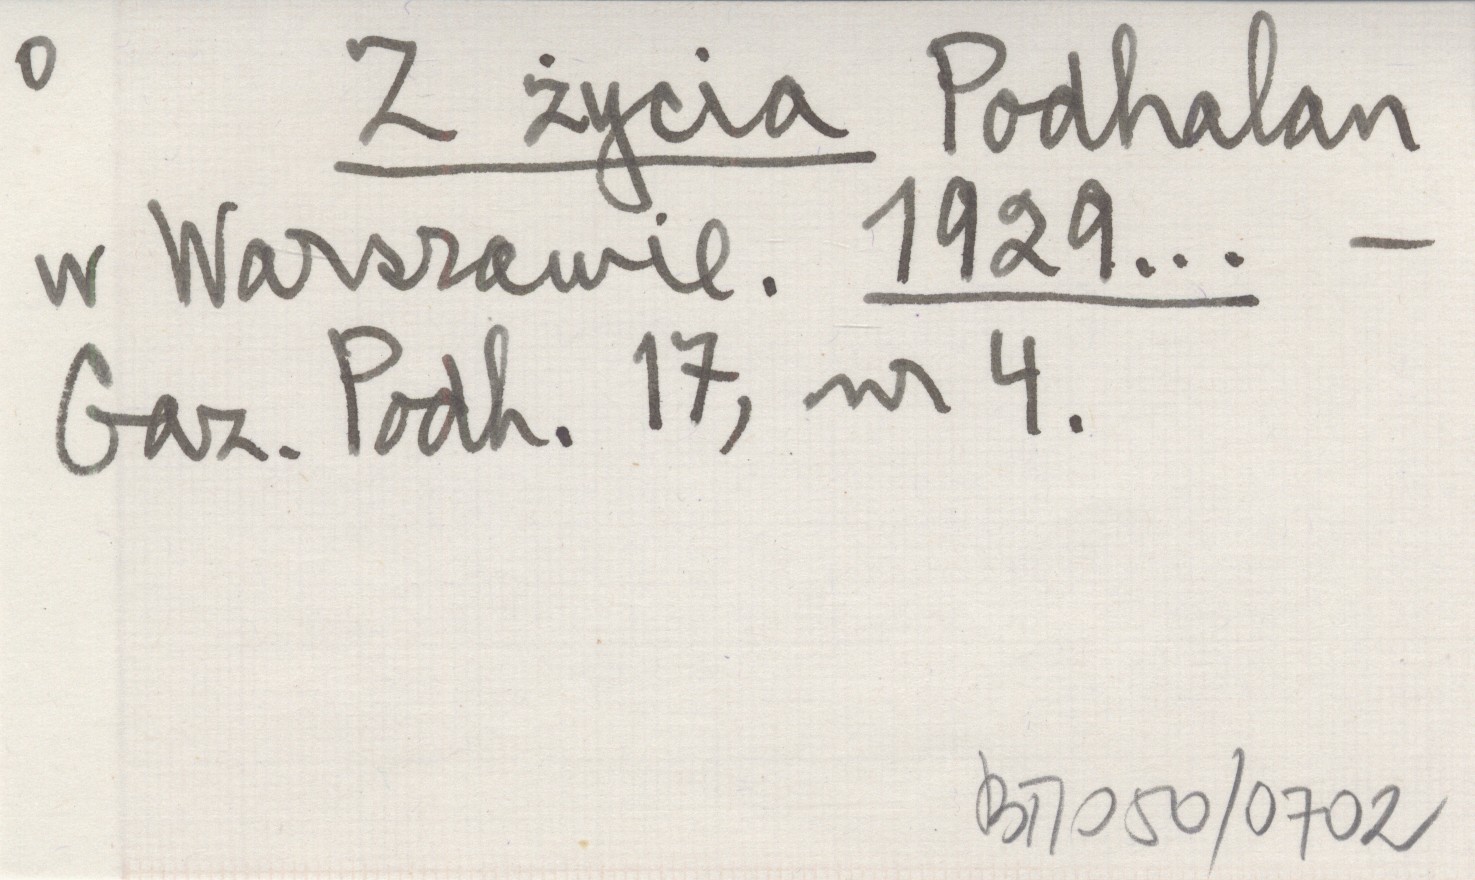 o Z życia Podhalan
w Warszawie. 1929... –
Gaz. Podh. 17, nr 4.
050/0702